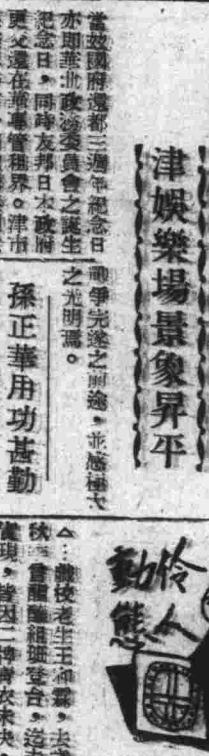 津娛樂場景象昇平
當茲國府還都三週年紀念日
亦即華北政務委員會之誕生
紀念日，同時友邦日本政府
更交還在華專管租界。津市
戰爭完遂之前途，並感極大
之光明焉。
孫正華用功甚勤
伶人
動態
△…鬚生王和霖，去
秋 會 組班登台，
現，皆因二博